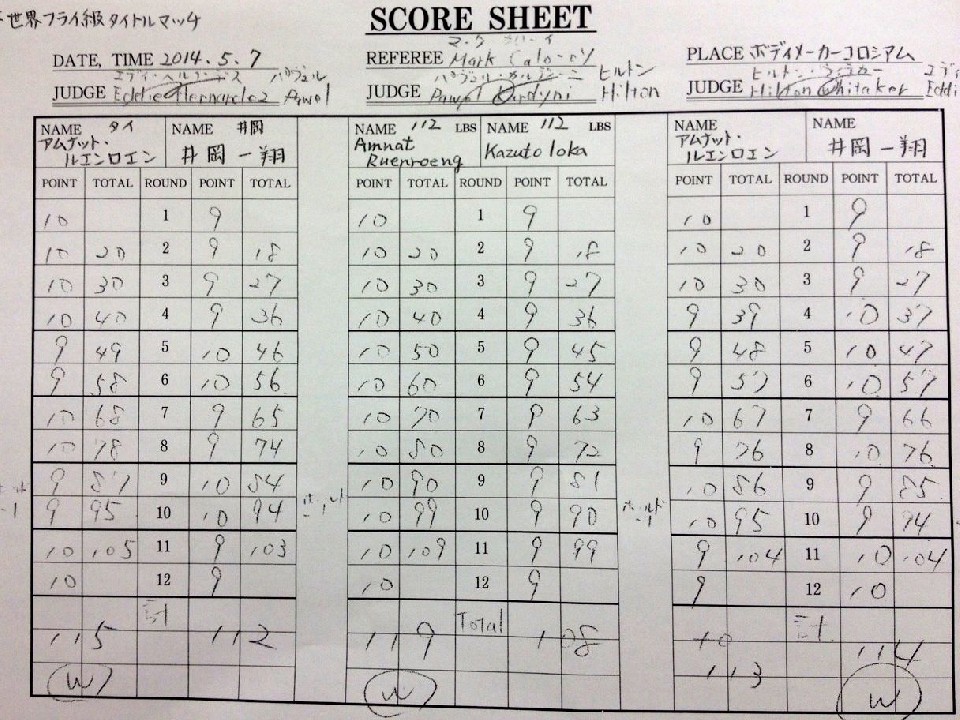 世界フライ級タイトルマッチ
SCORE SHEET
DATE, TIME 2014.5.7 REFEREE Mark PLACE ボディメーカーコロシアム
JUDGE Eddie Hernandez Pawel JUDGE Pawel Hilton JUDGE Hilton Whitaker Eddi
ヒルトン
NAME タイ NAME 井岡 NAME 112 LBS NAME 112 LBS NAME NAME
アムナット・ルエンロエン 井岡一翔 Amnat Ruenroeng Kazuto Ioka アムナット・ルエンロエン 井岡一翔
POINT TOTAL ROUND POINT TOTAL POINT TOTAL ROUND POINT TOTAL POINT TOTAL ROUND POINT TOTAL
10 1 9 10 1 9 10 1 9
10 20 2 9 18 10 20 2 9 18 10 20 2 9 18
10 30 3 9 27 10 30 3 9 27 10 30 3 9 27
10 40 4 9 36 10 40 4 9 36 9 39 4 10 37
9 49 5 10 46 10 50 5 9 45 9 48 5 10 47
9 58 6 10 56 10 60 6 9 54 9 57 6 10 57
10 68 7 9 65 10 70 7 9 63 10 67 7 9 66
10 78 8 9 74 10 80 8 9 72 9 76 8 10 76
9 87 9 10 84 10 90 9 9 81 10 86 9 9 85
9 95 10 10 94 ホールド -1 10 99 10 9 90 ホールド -1 10 95 10 9 94
10 105 11 9 103 10 109 11 9 99 9 104 11 10 104
10 12 9 10 12 9 9 12 10
計 Total 計
115 112 119 108 10 114
113
W W W